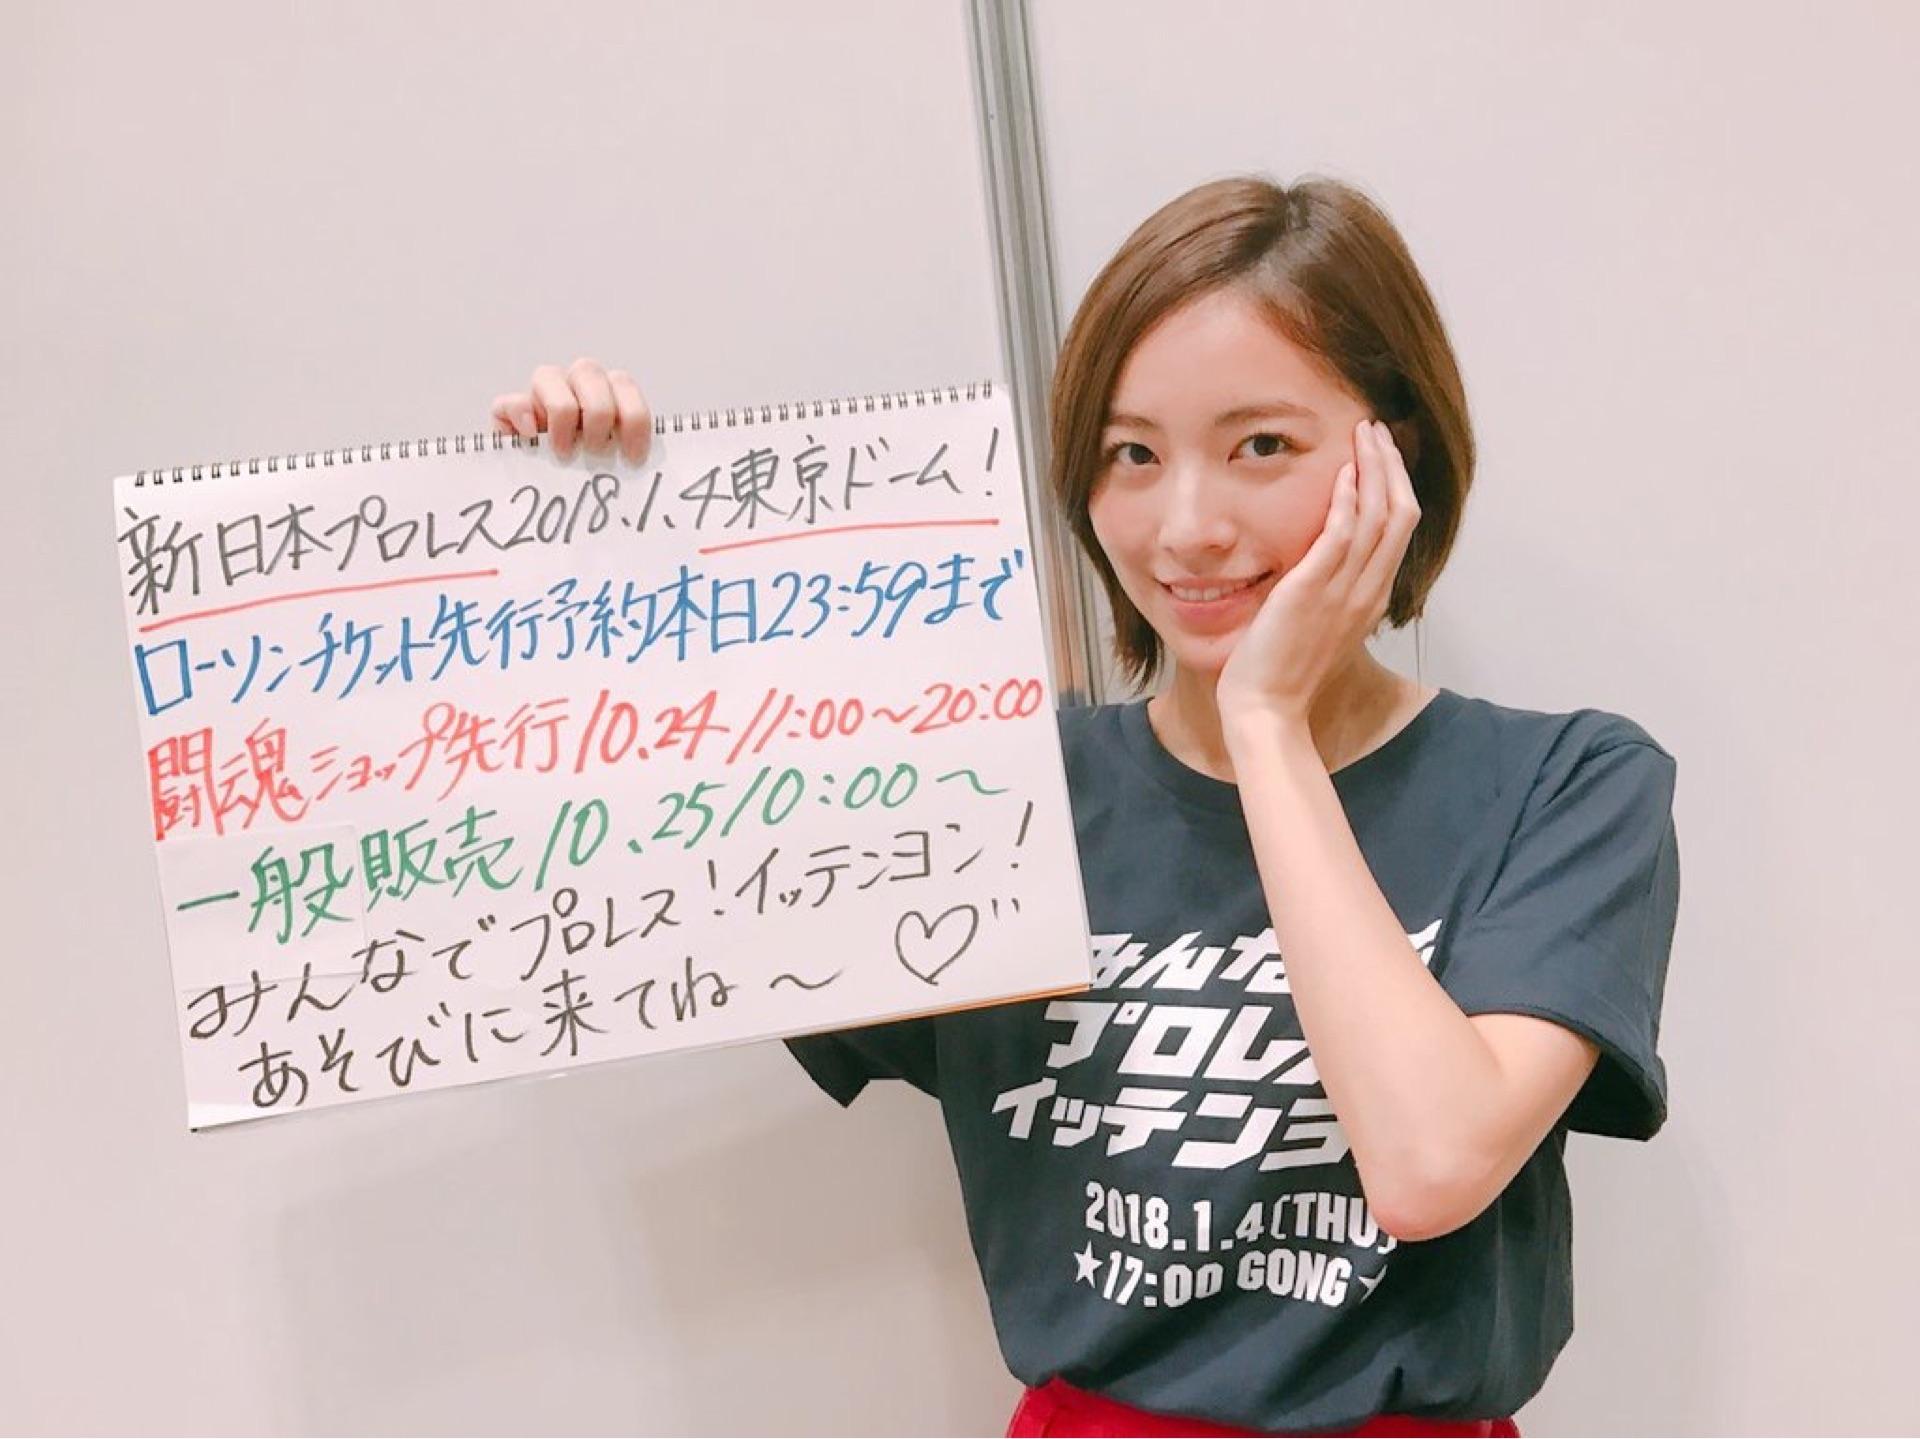 新日本プロレス2018.1.4東京ドーム!
ローソンチケット先行予約本日23:59まで
闘魂ショップ先行10.24 11:00〜20:00
一般販売10.25 10:00〜
みんなでプロレス!イッテンヨン!
あそびに来てね〜♡
みんな
プロレ
イッテンヨ
2018.1.4(THU)
★17:00 GONG★